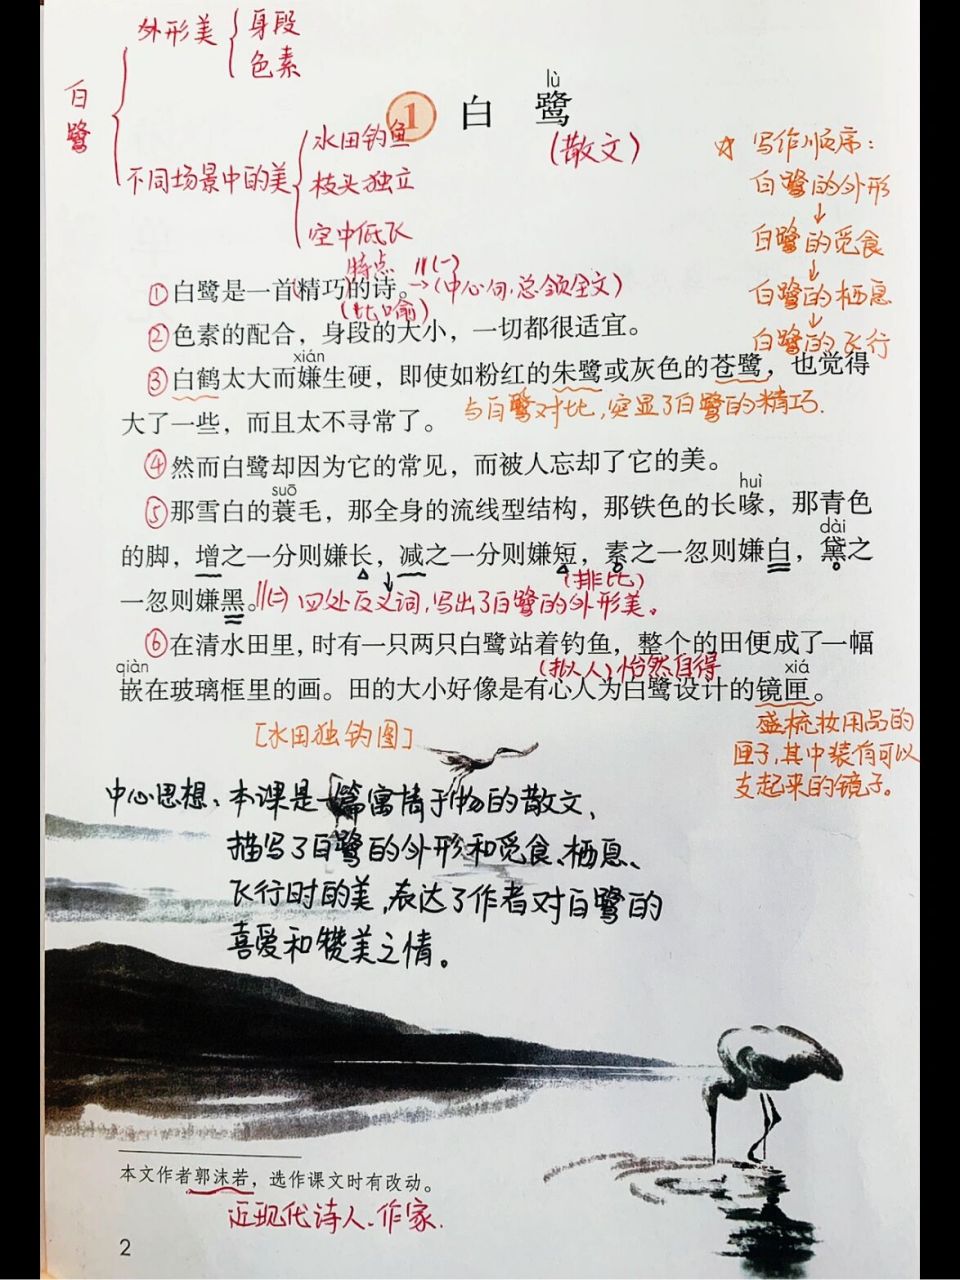 外形美 身段
色素
白鹭
不同场景中的美
水田钓鱼
枝头独立
空中低飞
1 白 鹭
lù
(散文)
☆ 写作顺序：
白鹭的外形
↓
白鹭的觅食
↓
白鹭的栖息
↓
白鹭的飞行
特点 //(一)
①白鹭是一首精巧的诗。→(中心句,总领全文)
(比喻)
②色素的配合，身段的大小，一切都很适宜。
xián
③白鹤太大而嫌生硬，即使如粉红的朱鹭或灰色的苍鹭，也觉得
大了一些，而且太不寻常了。 与白鹭对比,突显了白鹭的精巧.
④然而白鹭却因为它的常见，而被人忘却了它的美。
suō huì
⑤那雪白的蓑毛，那全身的流线型结构，那铁色的长喙，那青色
dài
的脚，增之一分则嫌长，减之一分则嫌短，素之一忽则嫌白，黛之
(排比)
一忽则嫌黑。//(二) 四处反义词,写出了白鹭的外形美。
⑥在清水田里，时有一只两只白鹭站着钓鱼，整个的田便成了一幅
qiàn (拟人)怡然自得 xiá
嵌在玻璃框里的画。田的大小好像是有心人为白鹭设计的镜匣。
[水田独钓图]
盛梳妆用品的
匣子,其中装有可以
支起来的镜子。
中心思想：本课是一篇寓情于物的散文、
描写了白鹭的外形和觅食、栖息、
飞行时的美,表达了作者对白鹭的
喜爱和赞美之情。
本文作者郭沫若，选作课文时有改动。
近现代诗人、作家.
2